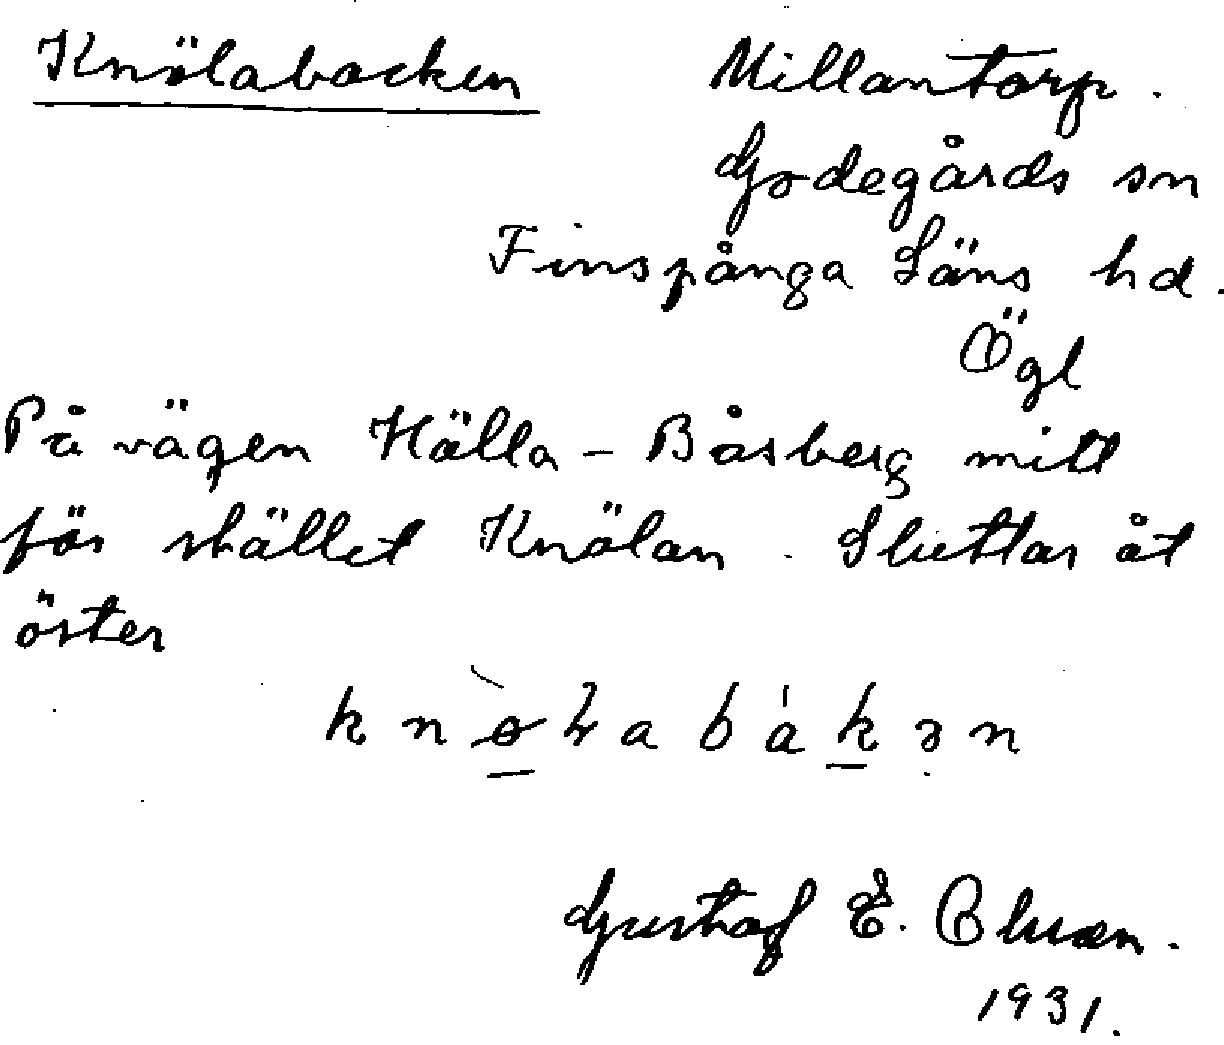 Knölabacken Millantorp.
Godegårds sn
Finspånga Läns hd.
Ögl
På vägen Hälla - Båsberg mitt
för stället Knölan. Sluttar åt
öster
Gustaf E.
1931.